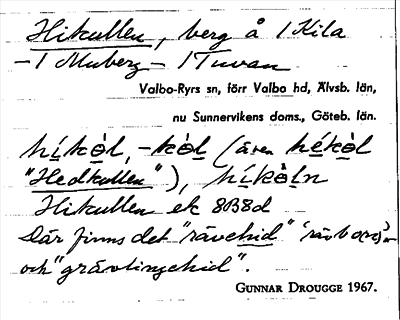 Hikullen, berg å 1 Kila
– 1 Muberg – 1 Tuvan
Valbo-Ryrs sn, förr Valbo hd, Älvsb. län,
nu Sunnervikens doms., Göteb. län.
híkòl, -kòl (även hékòl
"Hedkullen"), híkòln
Hikullen ek 8B8d
Där finns det "rävehid"
och "grävlingehid".
GUNNAR DROUGGE 1967.